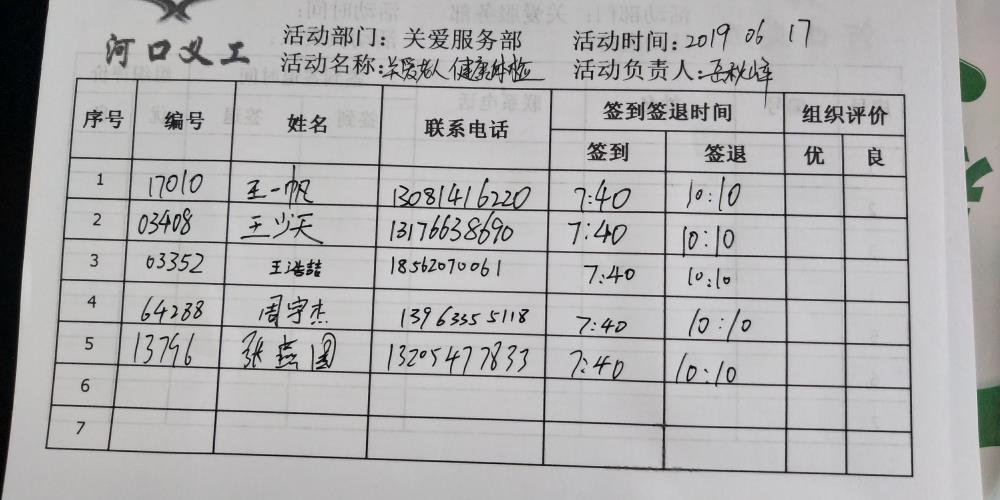 河口义工
活动部门：关爱服务部 活动时间：2019 06 17
活动名称：关爱老人 健康体检 活动负责人：岳秋峰
序号 编号 姓名 联系电话 签到签退时间 组织评价
签到 签退 优 良
1 17010 王一帆 13081416220 7:40 10:10
2 03408 王少天 13176638690 7:40 10:10
3 03352 王浩喆 18562070061 7:40 10:10
4 64288 周宇杰 13963355118 7:40 10:10
5 13796 张燕国 13205477833 7:40 10:10
6
7